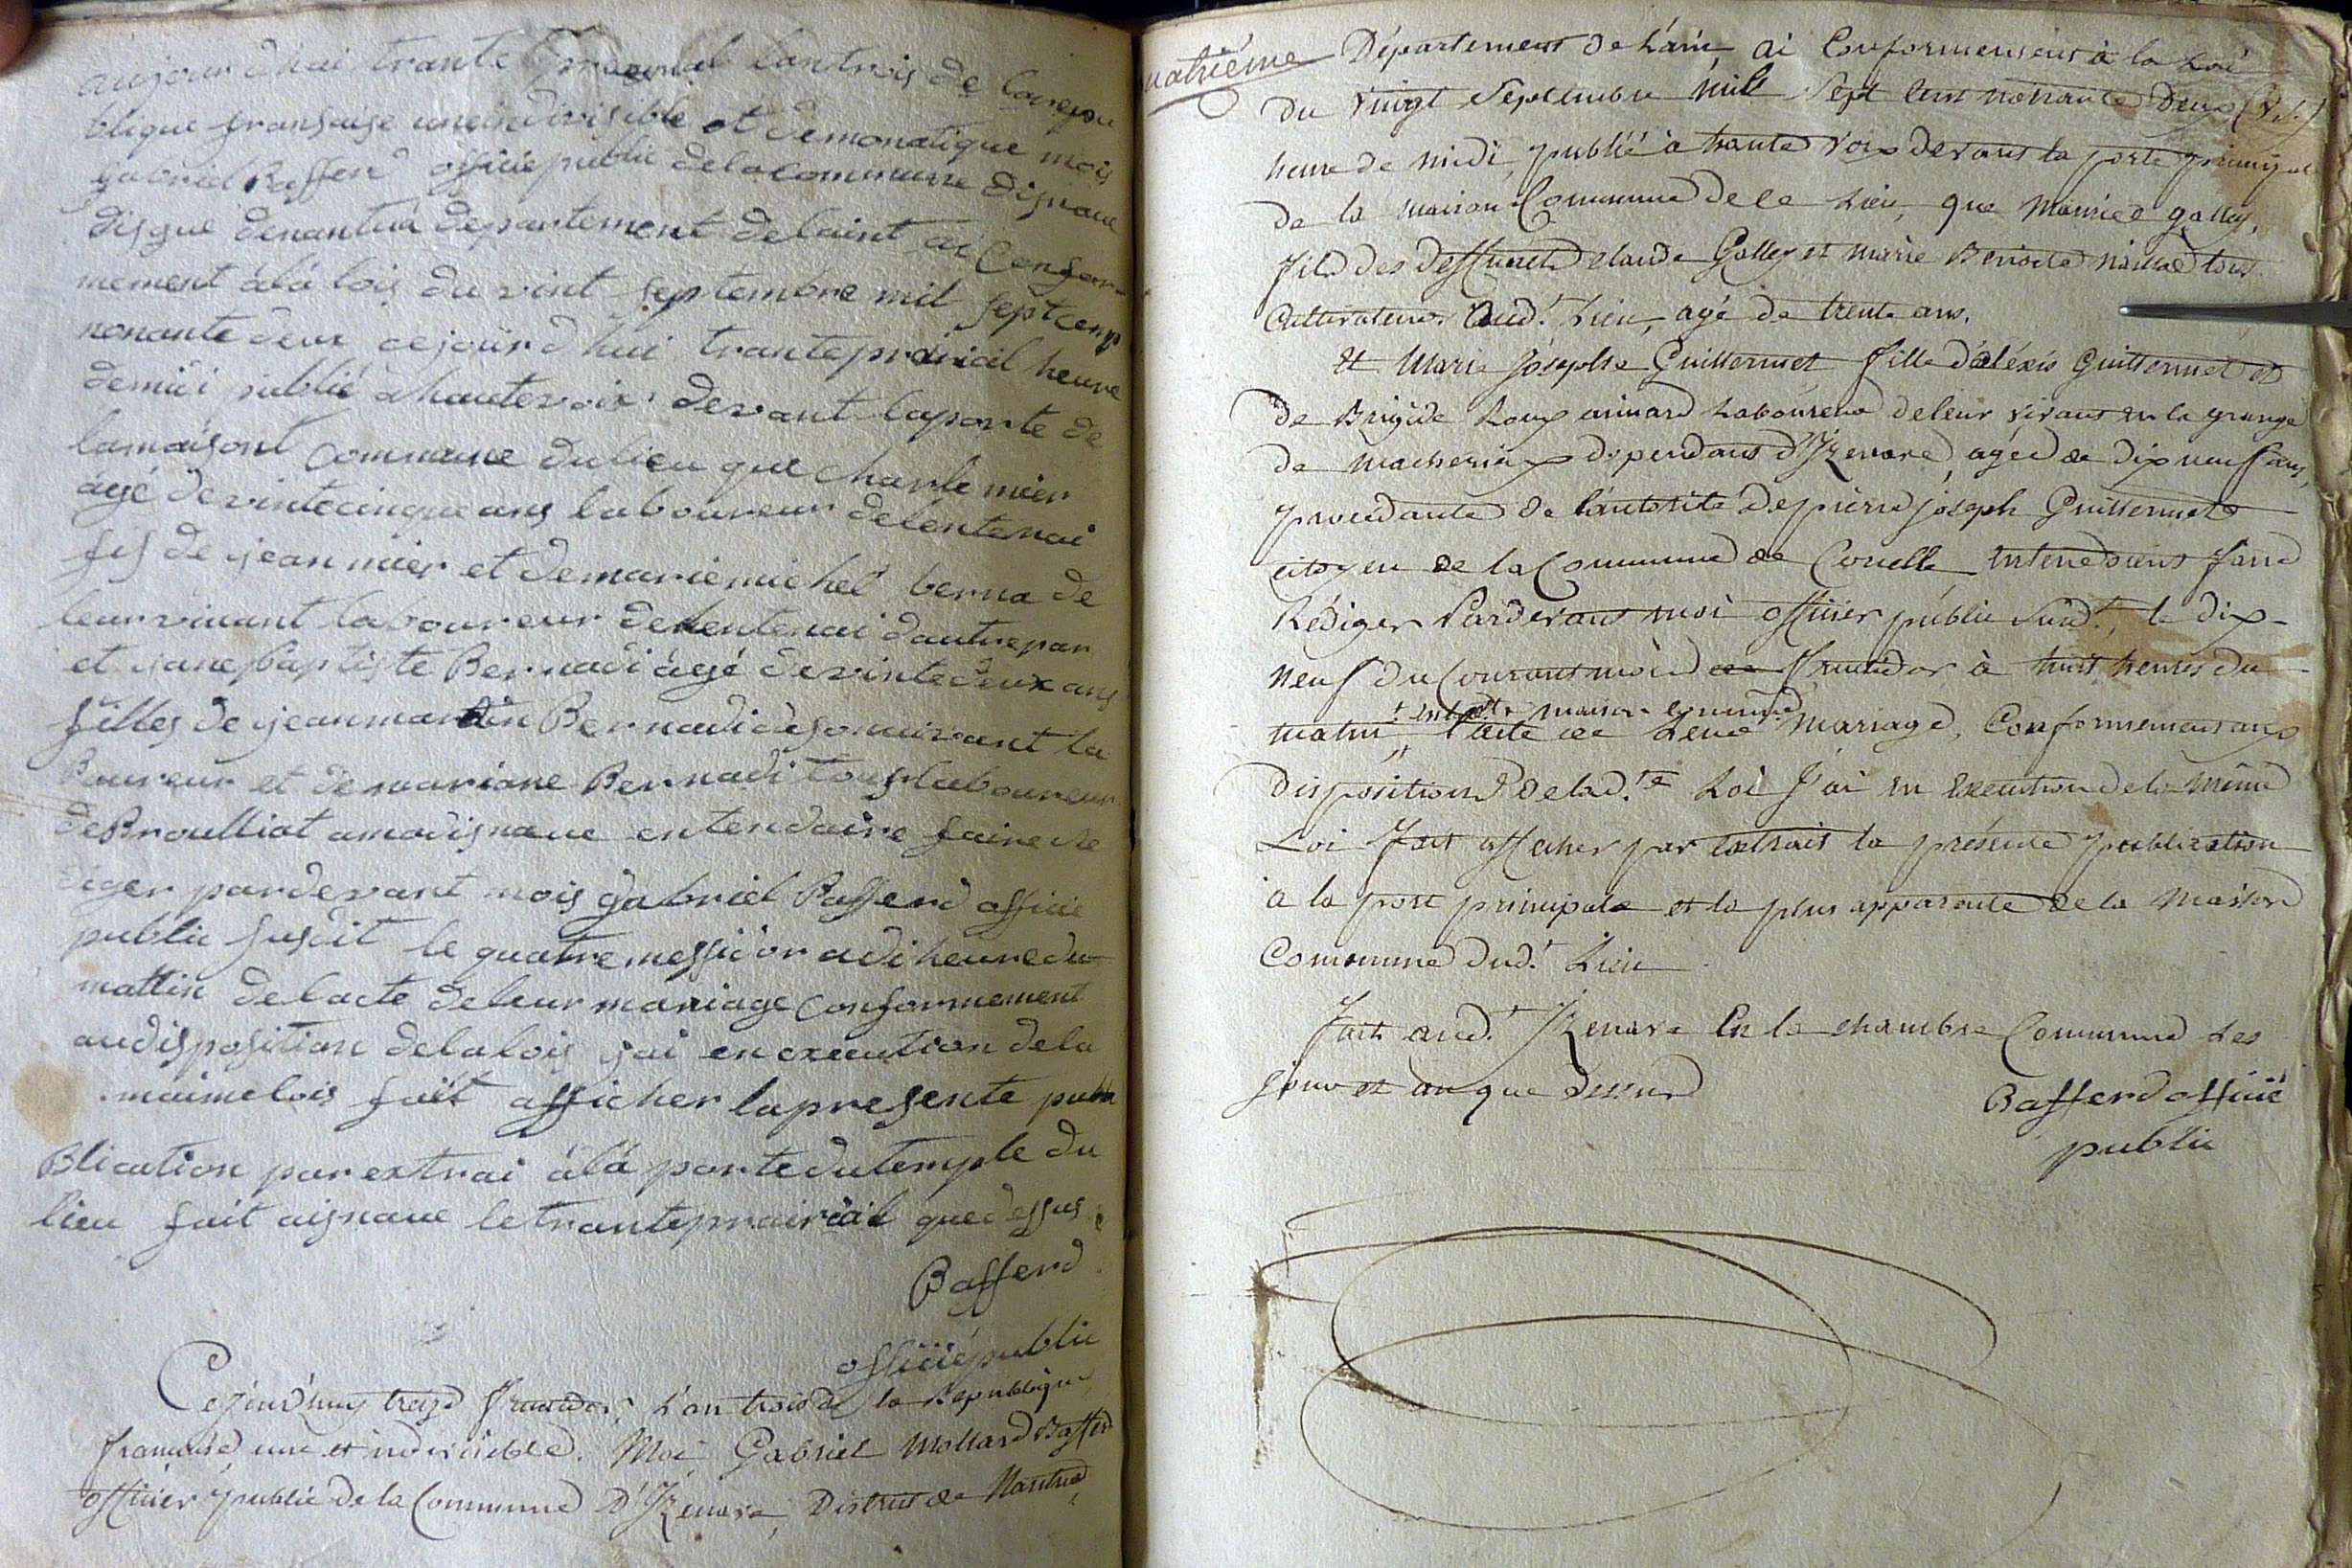 aujour dhui trante prairial lantrois de larepu
blique fransaise uneindivisible et demonatique mois
gabriel Bafferd officiepublic delacommune disnave
disque denantua departement delaint ai Confor-
mement àlà lois du vint septembre mil septcenp
nonante deux cejourdhui tranteprairial heure
demidi publié ahautevoix devant laporte de
lamaisont commune dulieu que charle mier
agé devintecinque ans laboureur delentenai
fis de jean mier et demariemichel berna de
leurvivant laboureur delentenai dautrepar
et jane baptiste Bernadi àgé devintedeux ans
filles de jeanmartin Bernadidesonvivant la
Boureur et demariane Bernadi touslaboureur
deBroulliat amodisnave entendaire faire re
diger pardevant mois gabriel Bafferd officie
public susdit le quatremessidor adiheuredu
mattin delacte deleurmariage conformement
audisposition delalois jai enexecution dela
maimelois fait afficher lapresente pub
Blication parextrai àlà portedutemple du
lieu fait aisnave letranteprairial quedessus
Bafferd
officiépublic
Cejourd'huy treize fructidor, L'an trois de la Republique
francaise, une et indivisible. Moi Gabriel Mollard Bafferd
officier public de la Commune D'Izenave, District de Nantua
quatriéme Département de L'ain ai Conformement à la Loi
du vingt Septembre mil Sept Cent nonante Deux (V.S.)
heure de midi, publié à haute voix devant la porte principal
de la maison Commune de ce Lieu, que Maurice galley,
fils des deffunts Claude Galley et marie Benoite tous
Cultivateurs aud.t Lieu, agé de trente ans.
Et Marie Josephe Guillermet fille d'aléxis Guillermet et
de Brigide Roux Laboureurs de leur vivant en la grange
de macheriax dépendant d'Izenave, agée de dix neuf ans,
procédante de l'autorité de pierre joseph Guillermet
citoyen de la Commune de Corcelle, entendoient faire
Rédiger Pardevant moi officier public susd.t, le dix-
neuf du Courant mois de fructidor à huit heures du
+ en lad.te maison commune
matin + l'acte de Leur Mariage, Conformement aux
dispositions de lad.te Loi J'ai en Execution de la même
Loi fait afficher par Extrait la présente publication
à la porte principale et la plus apparante de la Maison
Commune dud.t Lieu
Fait aud.t Izenave En la chambre Commune Les
jour et an que dessus
Bafferd officié
public